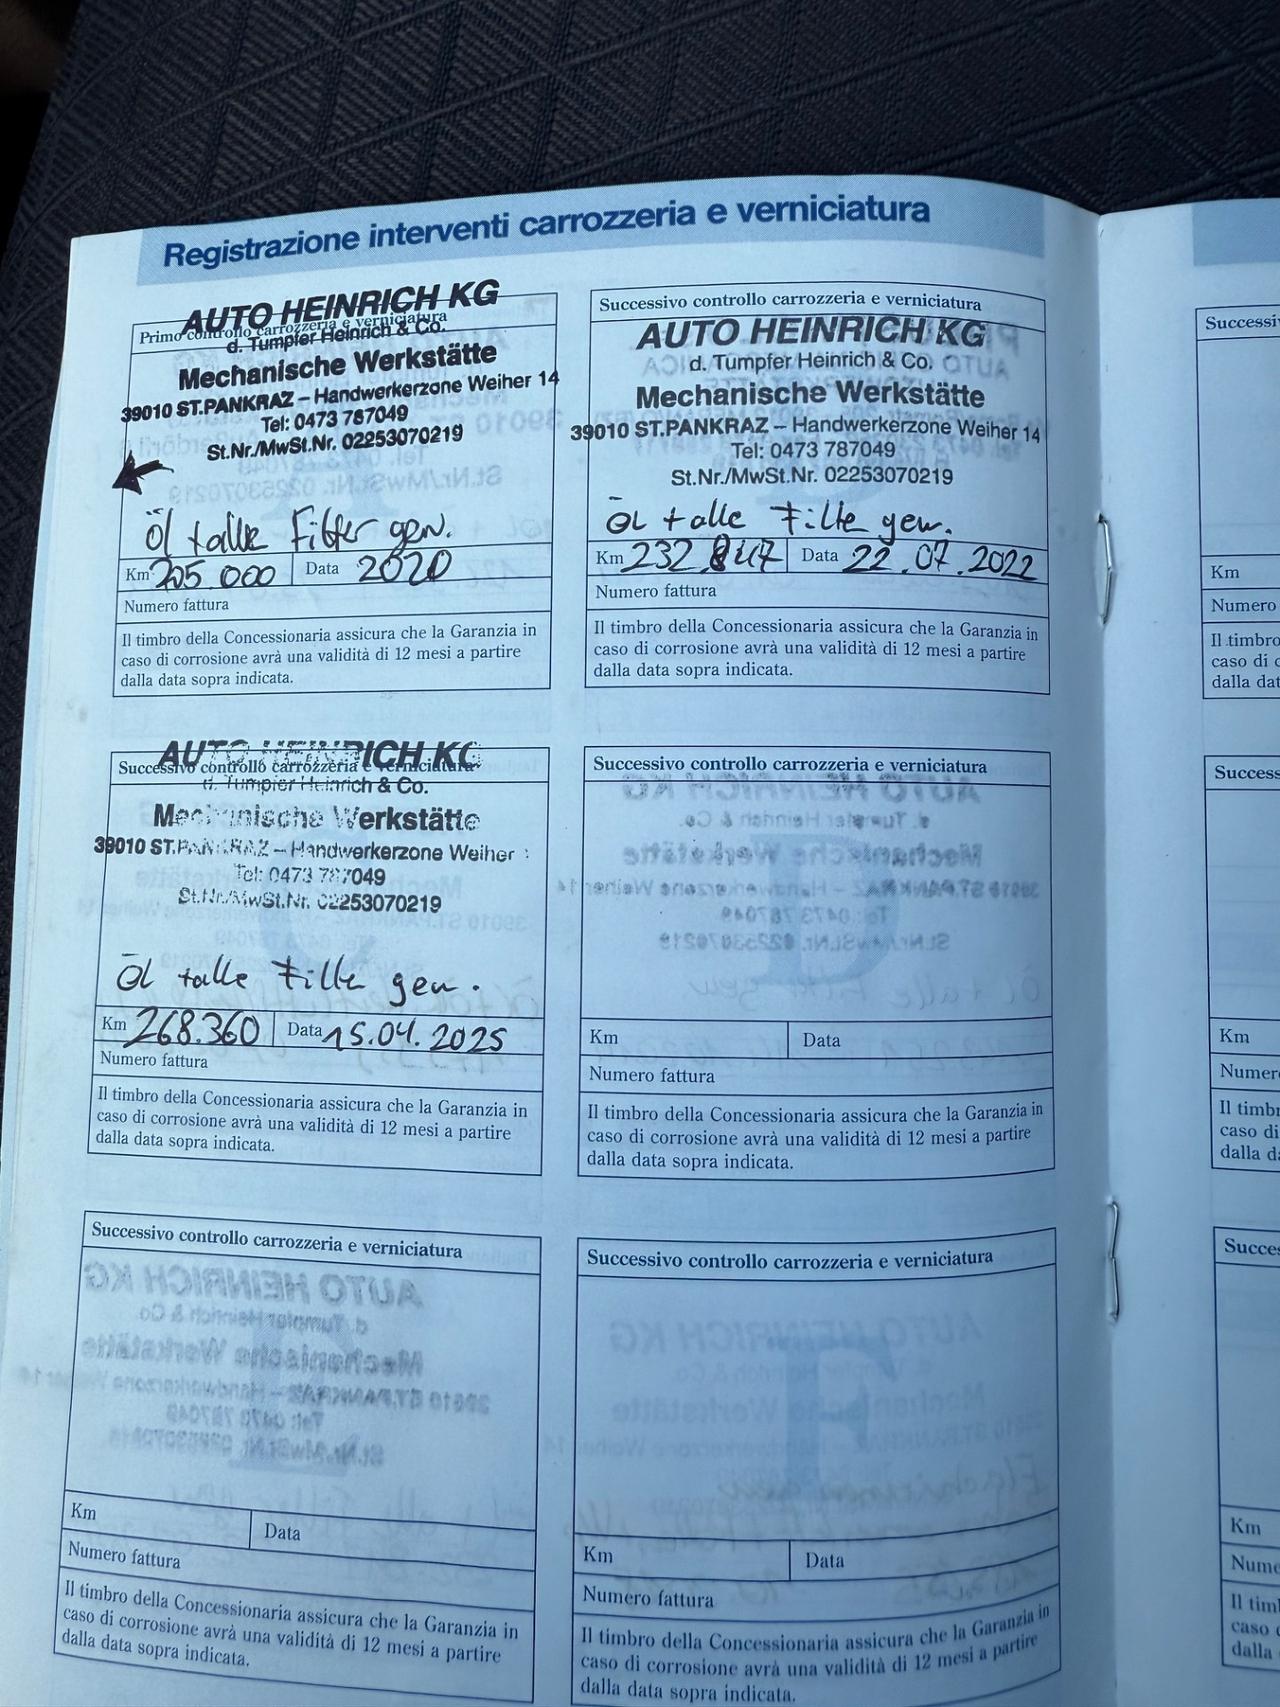 Registrazione interventi carrozzeria e verniciatura
AUTO HEINRICH KG
Primo controllo carrozzeria e verniciatura
d. Tumpfer Heinrich & Co.
Mechanische Werkstätte
39010 ST.PANKRAZ – Handwerkerzone Weiher 14
Tel: 0473 787049
St.Nr./MwSt.Nr. 02253070219
Öl + alle Filter gew.
Km 205.000 Data 2020
Numero fattura
Il timbro della Concessionaria assicura che la Garanzia in
caso di corrosione avrà una validità di 12 mesi a partire
dalla data sopra indicata.
Successivo controllo carrozzeria e verniciatura
AUTO HEINRICH KG
d. Tumpfer Heinrich & Co.
Mechanische Werkstätte
39010 ST.PANKRAZ – Handwerkerzone Weiher 14
Tel: 0473 787049
St.Nr./MwSt.Nr. 02253070219
Öl + alle Filte gew.
Km 232.847 Data 22.07.2022
Numero fattura
Il timbro della Concessionaria assicura che la Garanzia in
caso di corrosione avrà una validità di 12 mesi a partire
dalla data sopra indicata.
AUTO HEINRICH KG
Successivo controllo carrozzeria e verniciatura
d. Tumpfer Heinrich & Co.
Mechanische Werkstätte
39010 ST.PANKRAZ – Handwerkerzone Weiher
Tel: 0473 787049
St.Nr./MwSt.Nr. 02253070219
Öl + alle Filte gew.
Km 268.360 Data 15.04.2025
Numero fattura
Il timbro della Concessionaria assicura che la Garanzia in
caso di corrosione avrà una validità di 12 mesi a partire
dalla data sopra indicata.
Successivo controllo carrozzeria e verniciatura
Km Data
Numero fattura
Il timbro della Concessionaria assicura che la Garanzia in
caso di corrosione avrà una validità di 12 mesi a partire
dalla data sopra indicata.
Successivo controllo carrozzeria e verniciatura
Km Data
Numero fattura
Il timbro della Concessionaria assicura che la Garanzia in
caso di corrosione avrà una validità di 12 mesi a partire
dalla data sopra indicata.
Successivo controllo carrozzeria e verniciatura
Km Data
Numero fattura
Il timbro della Concessionaria assicura che la Garanzia in
caso di corrosione avrà una validità di 12 mesi a partire
dalla data sopra indicata.
Km
Numero
Il timbro
caso di
dalla
Km
Il timb
caso di
dalla
Km
Il
caso
dalla